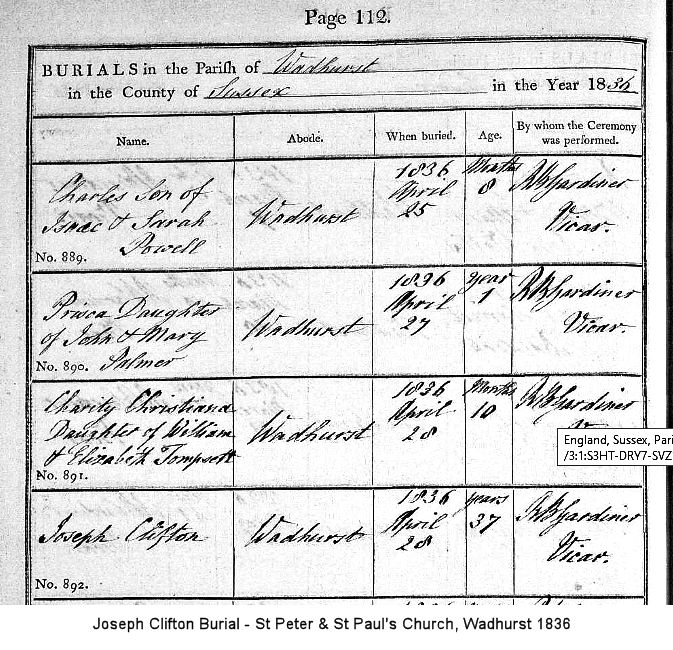 Page 112.
BURIALS in the Parish of Wadhurst
in the County of Sussex in the Year 1836
Name. Abode. When buried. Age. By whom the Ceremony was performed.
Charles Son of
Isaac & Sarah
Powell
No. 889.
Wadhurst
1836
April
25
Months
8
R B Gardiner
Vicar.
Prisca Daughter
of John & Mary
Palmer
No. 890.
Wadhurst
1836
April
27
year
1
R B Gardiner
Vicar.
Charity Christiana
Daughter of William
& Elizabeth Tompsett
No. 891.
Wadhurst
1836
April
28
Months
10
R B Gardiner
England, Sussex, Pari
/3:1:S3HT-DRY7-SVZ
Joseph Clifton
No. 892.
Wadhurst
1836
April
28
years
37
R B Gardiner
Vicar.
Joseph Clifton Burial - St Peter & St Paul's Church, Wadhurst 1836